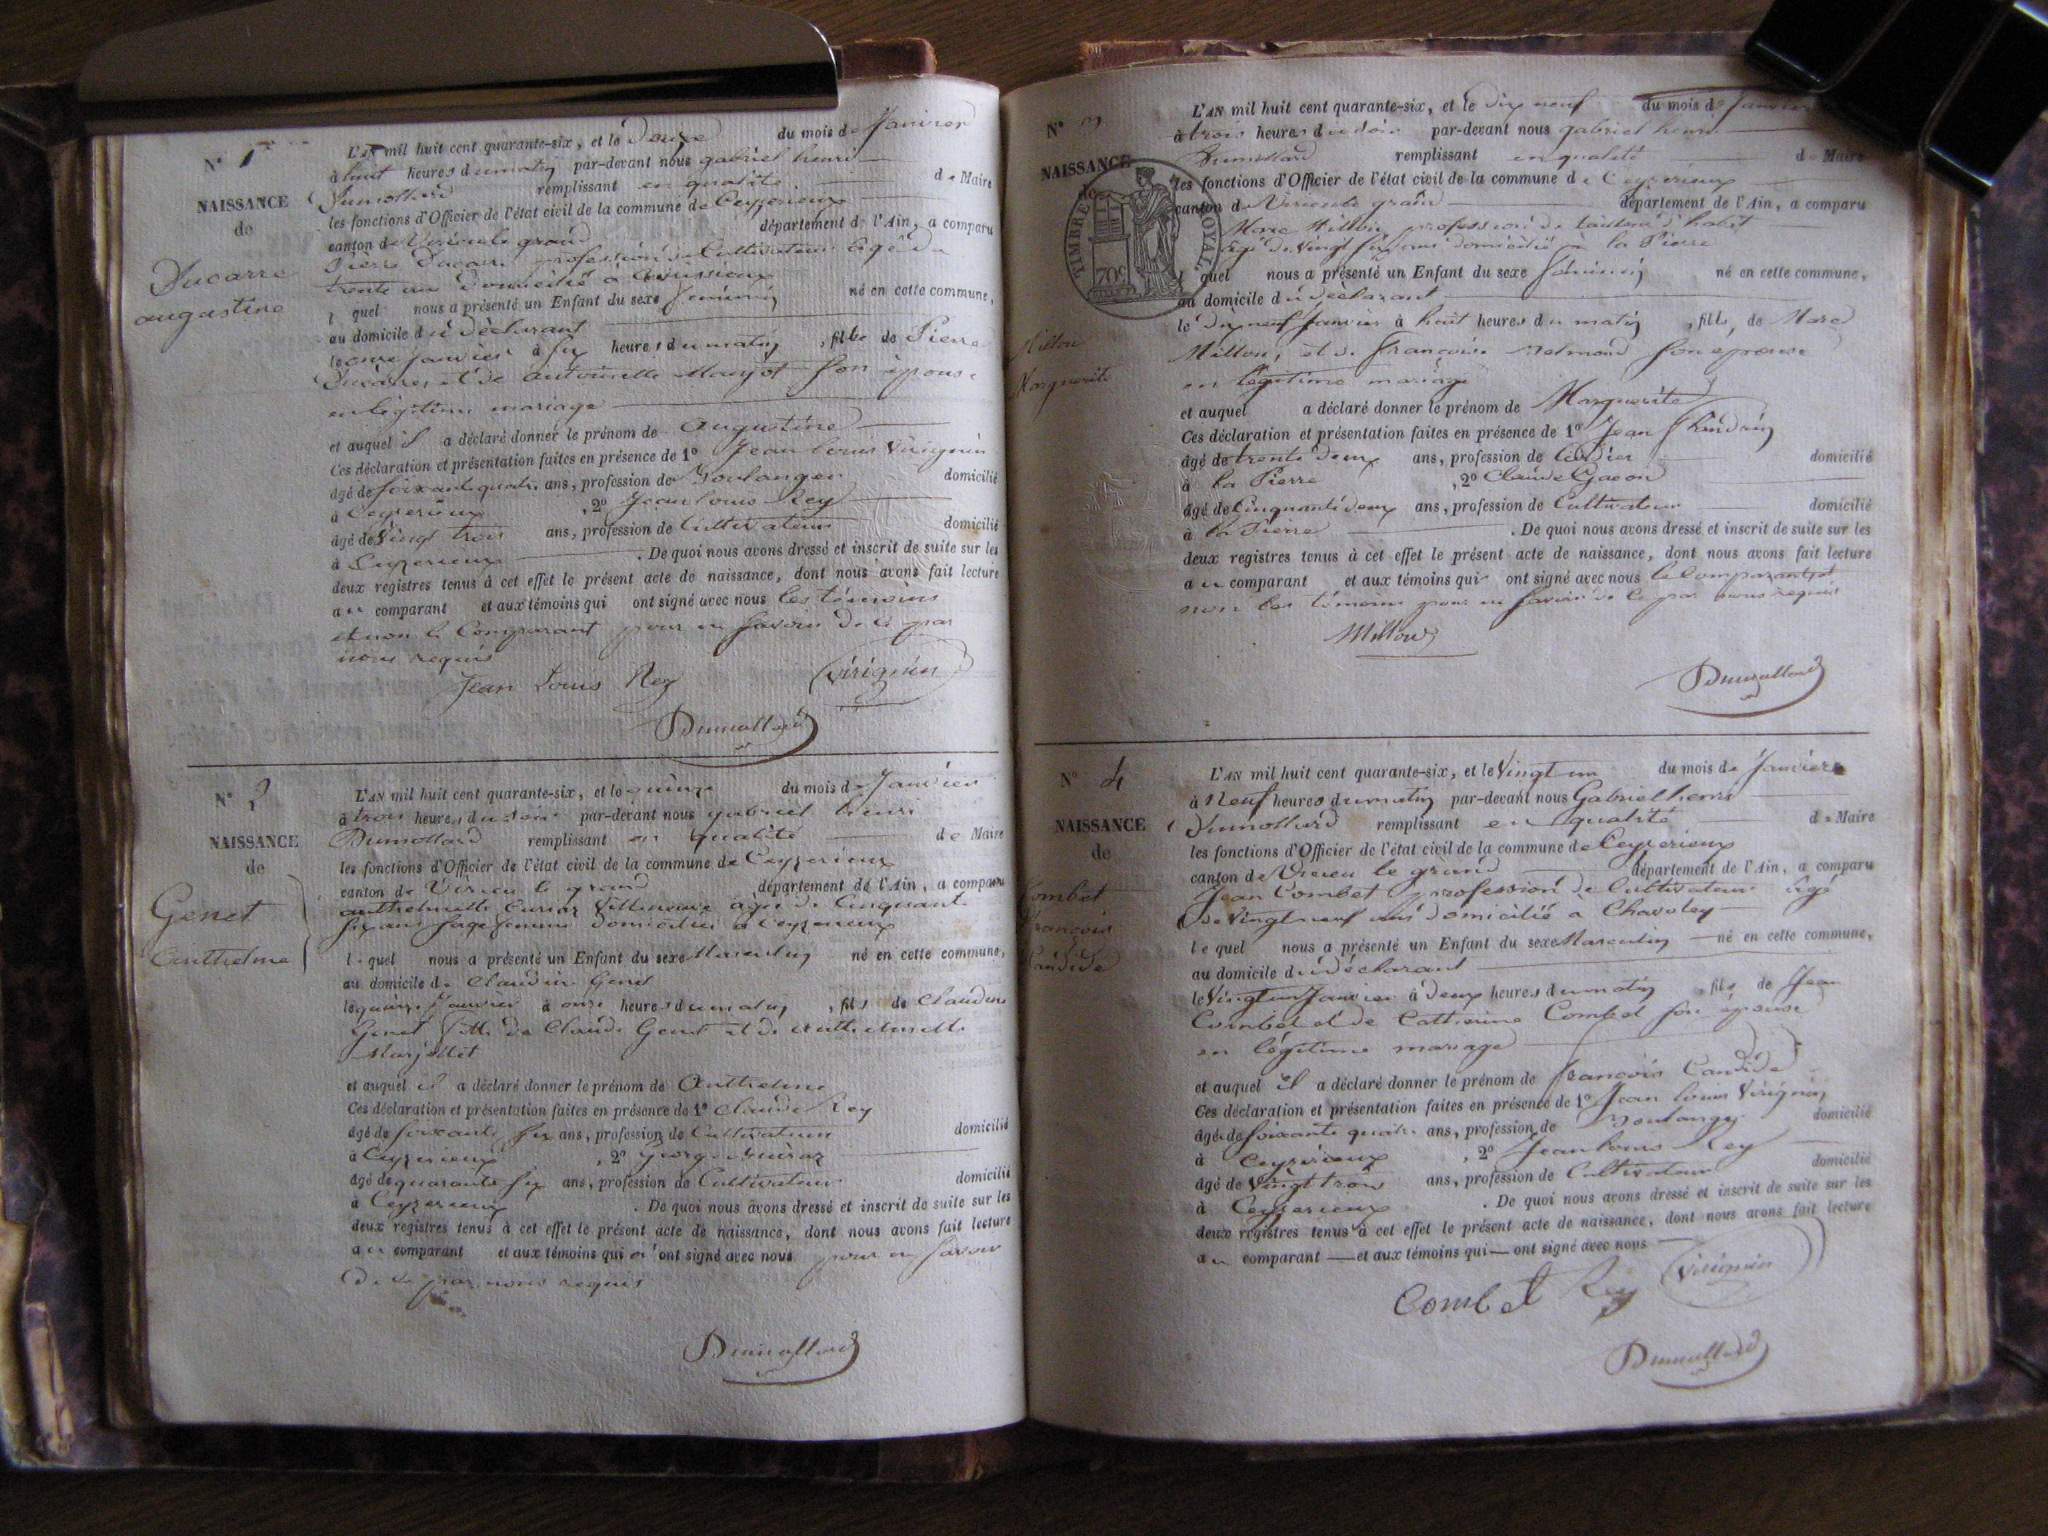 N° 1er
NAISSANCE
de
Ducarre
augustine
L'AN mil huit cent quarante-six, et le Douze du mois de Janvier
à huit heures du matin par-devant nous gabriel henri
Dumollard remplissant en qualité de Maire
les fonctions d'Officier de l'état civil de la commune de Ceyzerieux
canton de Virieu le grand département de l'Ain, a comparu
Pierre Ducarre profession de Cultivateur âgé de
trente ans Domicilié à
l quel nous a présenté un Enfant du sexe féminin né en cette commune,
au domicile du déclarant
le onze janvier à six heures du matin, fille de Pierre
Ducarre, et de antoinette son épouse
en légitime mariage
et auquel il a déclaré donner le prénom de augustine
Ces déclaration et présentation faites en présence de 1° Jean louis Virignin
âgé de soixante quatre ans, profession de Boulanger domicilié
à Ceyzerieux, 2° Jean louis Rey
âgé de Vingt trois ans, profession de Cultivateur domicilié
à Ceyzerieux. De quoi nous avons dressé et inscrit de suite sur les
deux registres tenus à cet effet le présent acte de naissance, dont nous avons fait lecture
au comparant et aux témoins qui ont signé avec nous les témoins
et non le Comparant pour ne savoir de ce par
nous requis
Jean Louis Rey Virignin
Dumollard
N° 2
NAISSANCE
de
Genet
Anthelme
L'AN mil huit cent quarante-six, et le quinze du mois de Janvier
à trois heures du soir par-devant nous gabriel henri
Dumollard remplissant en qualité de Maire
les fonctions d'Officier de l'état civil de la commune de Ceyzerieux
canton de Virieu le grand département de l'Ain, a comparu
anthelmette agée de Cinquante
six ans sage femme domiciliée à Ceyzerieux
l quel nous a présenté un Enfant du sexe Masculin né en cette commune,
au domicile de Claudine Genet
le quinze Janvier à onze heures du matin, fils de Claudine
Genet fille de Claude Genet et de anthelmette
Marjollet
et auquel il a déclaré donner le prénom de Anthelme
Ces déclaration et présentation faites en présence de 1° Claude Rey
âgé de soixante six ans, profession de Cultivateur domicilié
à Ceyzerieux, 2° george
âgé de quarante six ans, profession de Cultivateur domicilié
à Ceyzerieux. De quoi nous avons dressé et inscrit de suite sur les
deux registres tenus à cet effet le présent acte de naissance, dont nous avons fait lecture
au comparant et aux témoins qui n'ont signé avec nous pour ne savoir
de ce par nous requis
Dumollard
N° 3
NAISSANCE
de
Millou
Marguerite
TIMBRE ROYAL
70c
L'AN mil huit cent quarante-six, et le dix neuf du mois de Janvier
à trois heures du soir par-devant nous gabriel henri
Dumollard remplissant en qualité de Maire
les fonctions d'Officier de l'état civil de la commune de Ceyzerieux
canton de Virieu le grand département de l'Ain, a comparu
Marc Millou, profession de tailleur d'habit
agé de Vingt six ans domicilié à la Pierre
l quel nous a présenté un Enfant du sexe féminin né en cette commune,
au domicile du déclarant
le dix neuf Janvier à huit heures du matin, fille de Marc
Millou, et de françoise son épouse
en légitime mariage
et auquel a déclaré donner le prénom de Marguerite
Ces déclaration et présentation faites en présence de 1° Jean
âgé de trente deux ans, profession de domicilié
à la Pierre, 2° Claude Gacon
âgé de Cinquante deux ans, profession de Cultivateur domicilié
à la Pierre. De quoi nous avons dressé et inscrit de suite sur les
deux registres tenus à cet effet le présent acte de naissance, dont nous avons fait lecture
au comparant et aux témoins qui ont signé avec nous le comparant et
non les témoins pour ne savoir de ce par nous requis
Millou
Dumollard
N° 4
NAISSANCE
de
Combet
François
Candide
L'AN mil huit cent quarante-six, et le Vingt un du mois de Janvier
à Neuf heures du matin par-devant nous Gabriel henri
Dumollard remplissant en qualité de Maire
les fonctions d'Officier de l'état civil de la commune de Ceyzerieux
canton de Virieu le grand département de l'Ain, a comparu
Jean Combet profession de Cultivateur âgé
de Vingt neuf ans domicilié à Chavoley
le quel nous a présenté un Enfant du sexe Masculin né en cette commune,
au domicile du déclarant
le Vingt un Janvier à deux heures du matin, fils de Jean
Combet et de Catherine Combet son épouse
en légitime mariage
et auquel il a déclaré donner le prénom de françois Candide
Ces déclaration et présentation faites en présence de 1° Jean louis Virignin
âgé de soixante quatre ans, profession de Boulanger domicilié
à Ceyzerieux, 2° Jean louis Rey
âgé de Vingt trois ans, profession de Cultivateur domicilié
à Ceyzerieux. De quoi nous avons dressé et inscrit de suite sur les
deux registres tenus à cet effet le présent acte de naissance, dont nous avons fait lecture
au comparant et aux témoins qui ont signé avec nous
Combet Rey Virignin
Dumollard